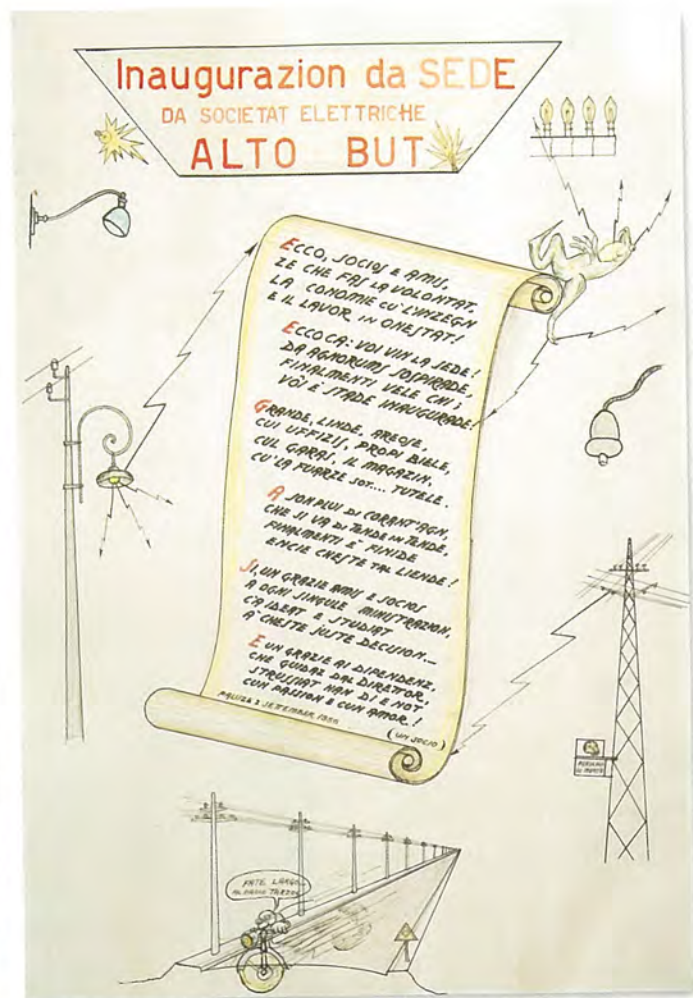 Inaugurazion da SEDE
DA SOCIETAT ELETTRICHE
ALTO BUT
ECCO, SOCIOS E AMIS,
ZE CHE FAS LA VOLONTAT,
LA CONOMIE CU' L'INZEGN
E IL LAVOR IN ONESTAT!
ECCO CA: VOI VIN LA SEDE!
DA AGNORUMS SOSPIRADE,
FINALMENTI VELE CHI;
VÒI E' STADE INAUGURADE!
GRANDE, LINDE, AREOSE,
CUI UFFIZIS, PROPI BIELE,
CUL GARAS, IL MAGAZIN,
CU' LA FUARZE SOT.... TUTELE.
A SON PLUI DI CORANT'AGN,
CHE SI VA DI TENDE IN TENDE,
FINALMENTI E' FINIDE
ENCIE CHESTE TAL LIENDE!
SI, UN GRAZIE AMIS E SOCIOS
A OGNI SINGULE MINISTRAZION,
C'A IDEAT E STUDIAT
A' CHESTE JUSTE DECISION,...
E UN GRAZIE AI DIPENDENZ,
CHE GUIDAZ DAL DIRETTOR,
STRUSSIAT HAN DI E NOT
CUN PASSION E CUN AMOR!
PALUZA 2 SETTEMBER
(UN SOCIO)
PERICOLO
DI MORTE
FATE LARGO...